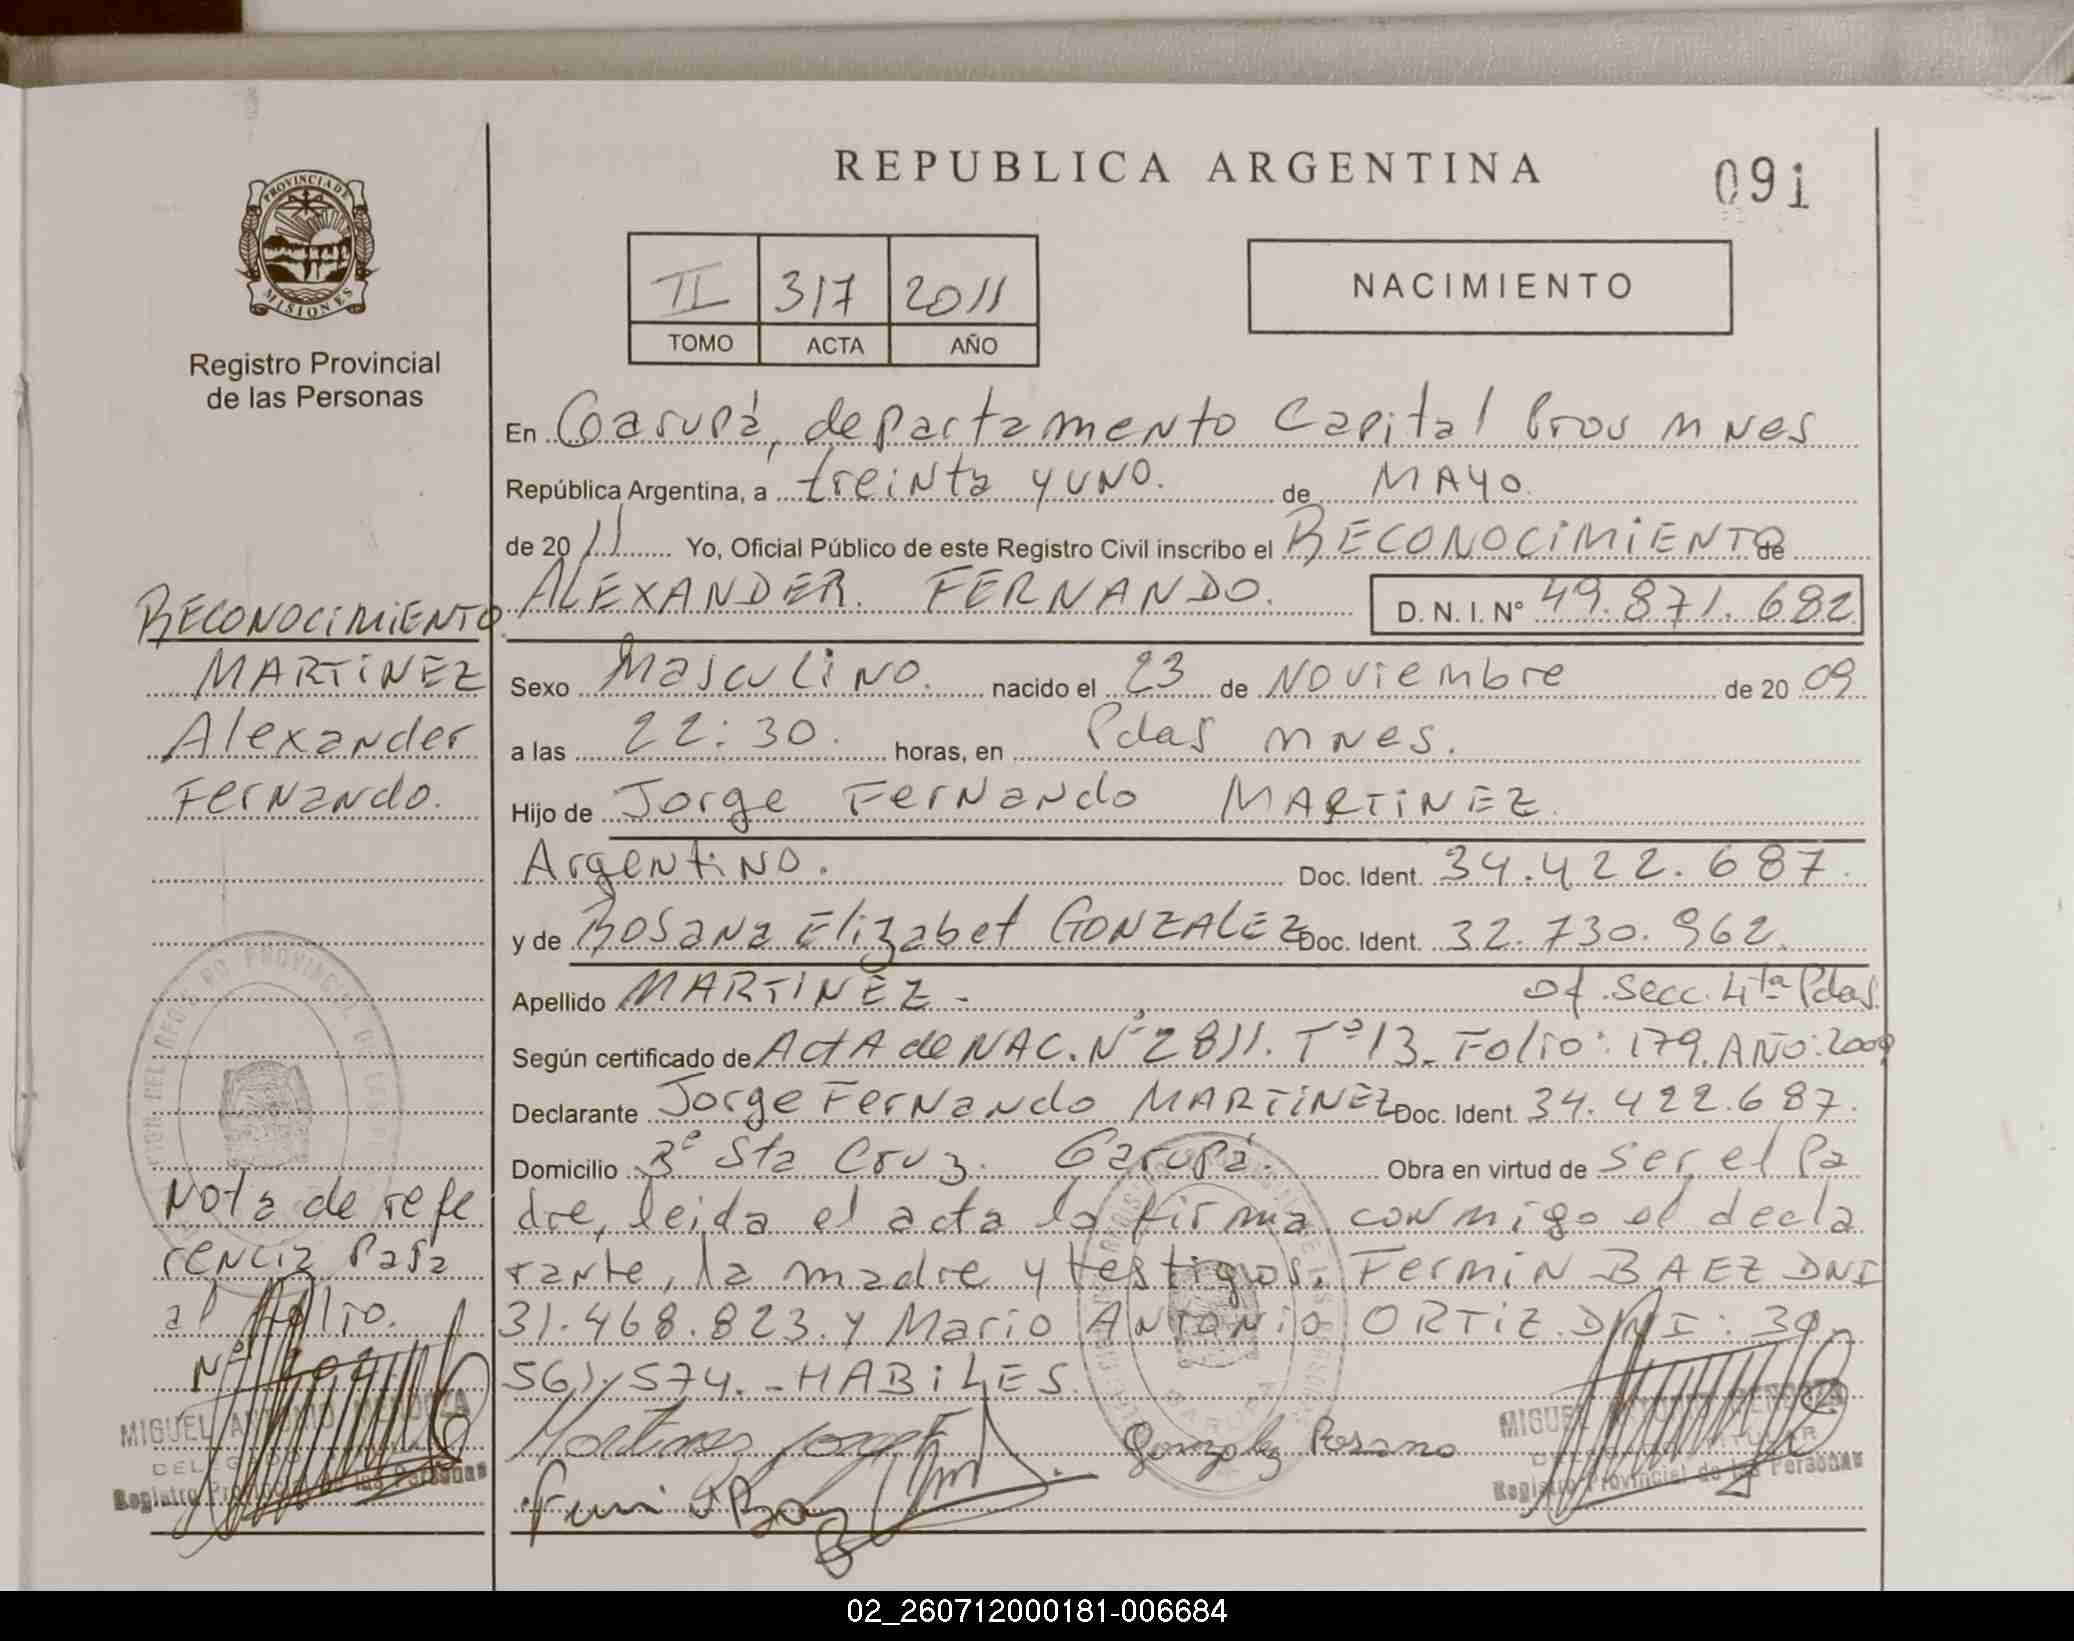 REPUBLICA ARGENTINA
091
PROVINCIA DE MISIONES
Registro Provincial
de las Personas
II 317 2011
TOMO ACTA AÑO
NACIMIENTO
En Garupá, departamento Capital Prov Mnes
República Argentina, a treinta y uno. de MAYO.
de 2011 Yo, Oficial Público de este Registro Civil inscribo el RECONOCIMIENTO de
ALEXANDER FERNANDO. D. N. I. N° 49.871.682
Sexo Masculino. nacido el 23 de Noviembre de 2009
a las 22:30. horas, en Pdas Mnes.
Hijo de Jorge Fernando MARTINEZ.
Argentino. Doc. Ident. 34.422.687.
y de Rosana Elizabet GONZALEZ Doc. Ident. 32.730.962.
Apellido MARTINEZ - Of. Secc. 4ta Pdas.
Según certificado de Acta de NAC. N° 2811. T° 13. Folio: 179. AÑO: 2009
Declarante Jorge Fernando MARTINEZ Doc. Ident. 34.422.687.
Domicilio B° Sta Cruz. Garupá. Obra en virtud de ser el Pa
dre, leida el acta la firma conmigo el decla
rante, la madre y testigos. Fermin BAEZ DNI
31.468.823. y Mario Antonio ORTIZ. DNI: 39.
561.574. - HABILES.
Martinez Jorge
Gonzalez Rosana
RECONOCIMIENTO.
MARTINEZ
Alexander
Fernando.
Nota de refe
rencia Pasa
al folio.
N°
MIGUEL ANTONIO MENDOZA
DELEGADO
Registro Provincial de las Personas
MIGUEL ANTONIO MENDOZA
DELEGADO TITULAR
Registro Provincial de las Personas
02_260712000181-006684